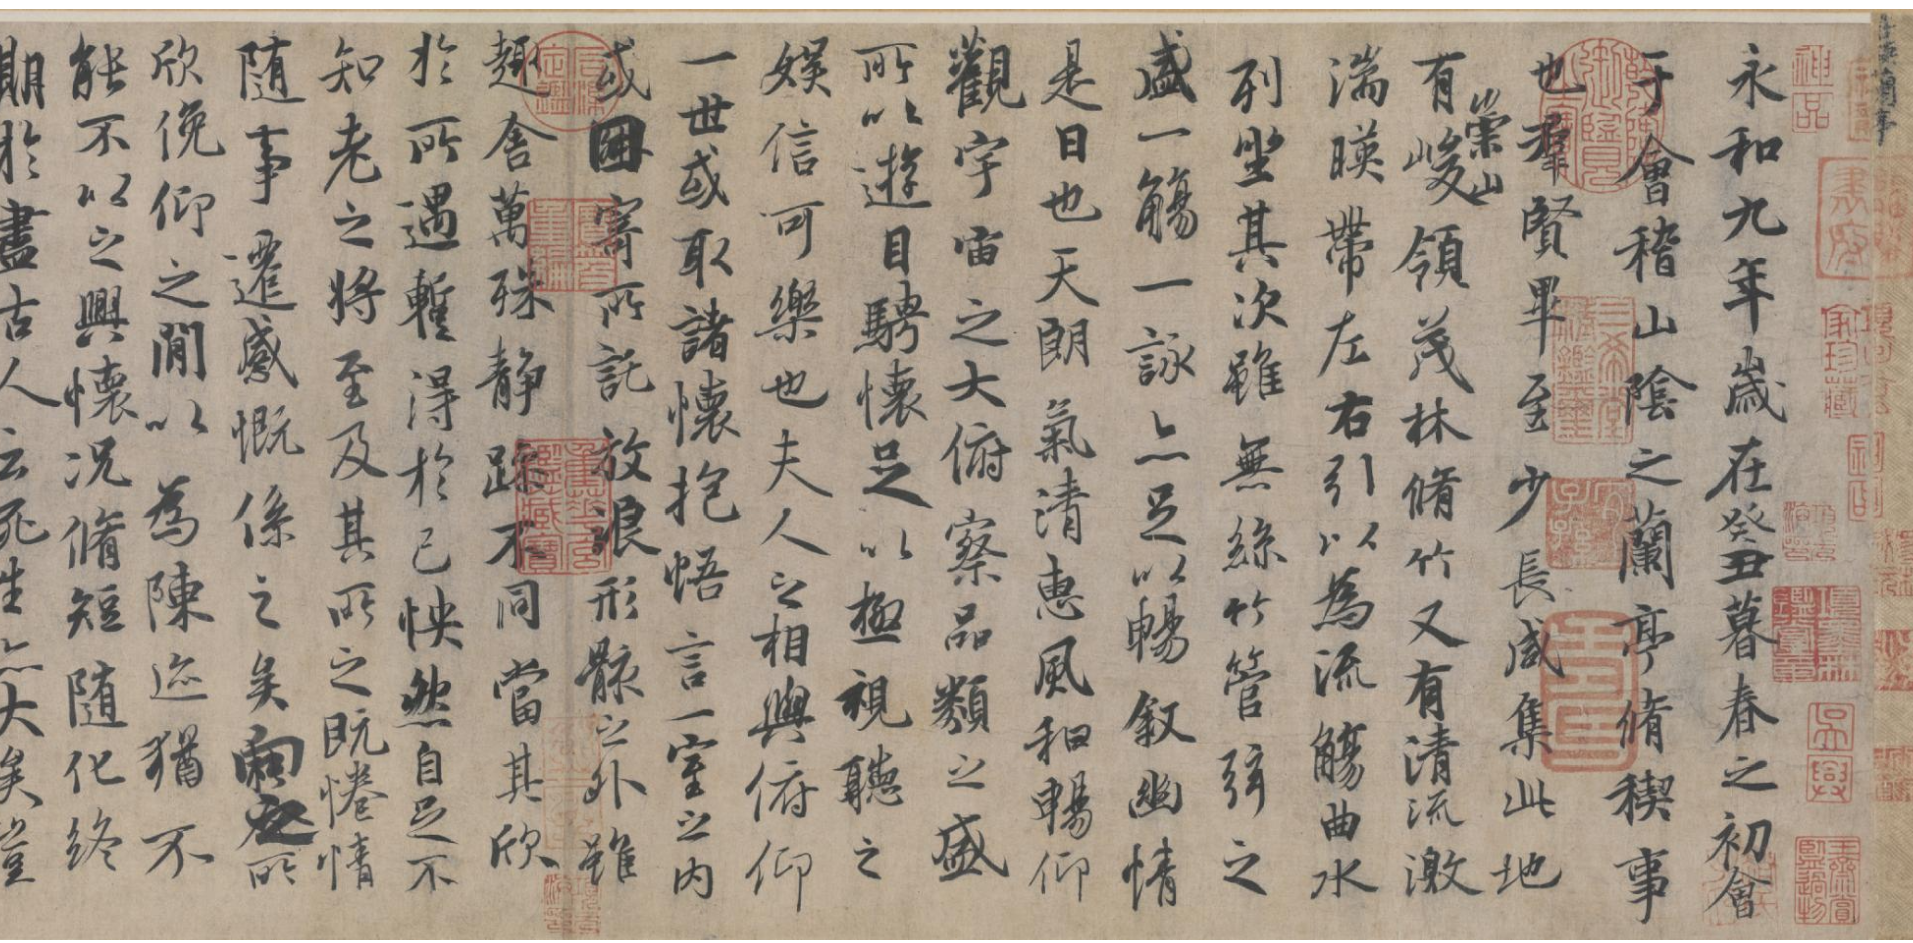 神品
永和九年歲在癸丑暮春之初會
于會稽山陰之蘭亭脩稧事
也羣賢畢至少長咸集此地
有崇山峻領茂林脩竹又有清流激
湍暎帶左右引以為流觴曲水
列坐其次雖無絲竹管弦之
盛一觴一詠亦足以暢叙幽情
是日也天朗氣清惠風和暢仰
觀宇宙之大俯察品類之盛
所以遊目騁懷足以極視聽之
娛信可樂也夫人之相與俯仰
一世或取諸懷抱悟言一室之內
或因寄所託放浪形骸之外雖
趣舍萬殊静躁不同當其欣
於所遇蹔得於己怏然自足不
知老之將至及其所之既惓情
隨事遷感慨係之矣向之所
欣俛仰之閒以為陳迹猶不
能不以之興懷況脩短隨化終
期於盡古人云死生亦大矣豈